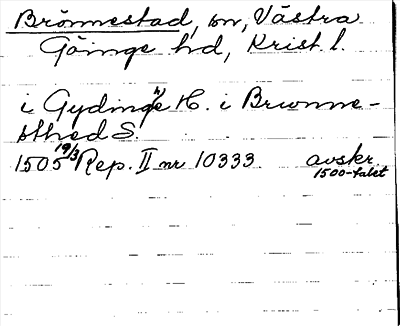 Brönnestad, sn, Västra
Göinge hd, Krist. l.
i Gydinge H. i Brwnne-
sthed S.
1505 19/3 Rep. II nr 10333. avskr.
1500-talet